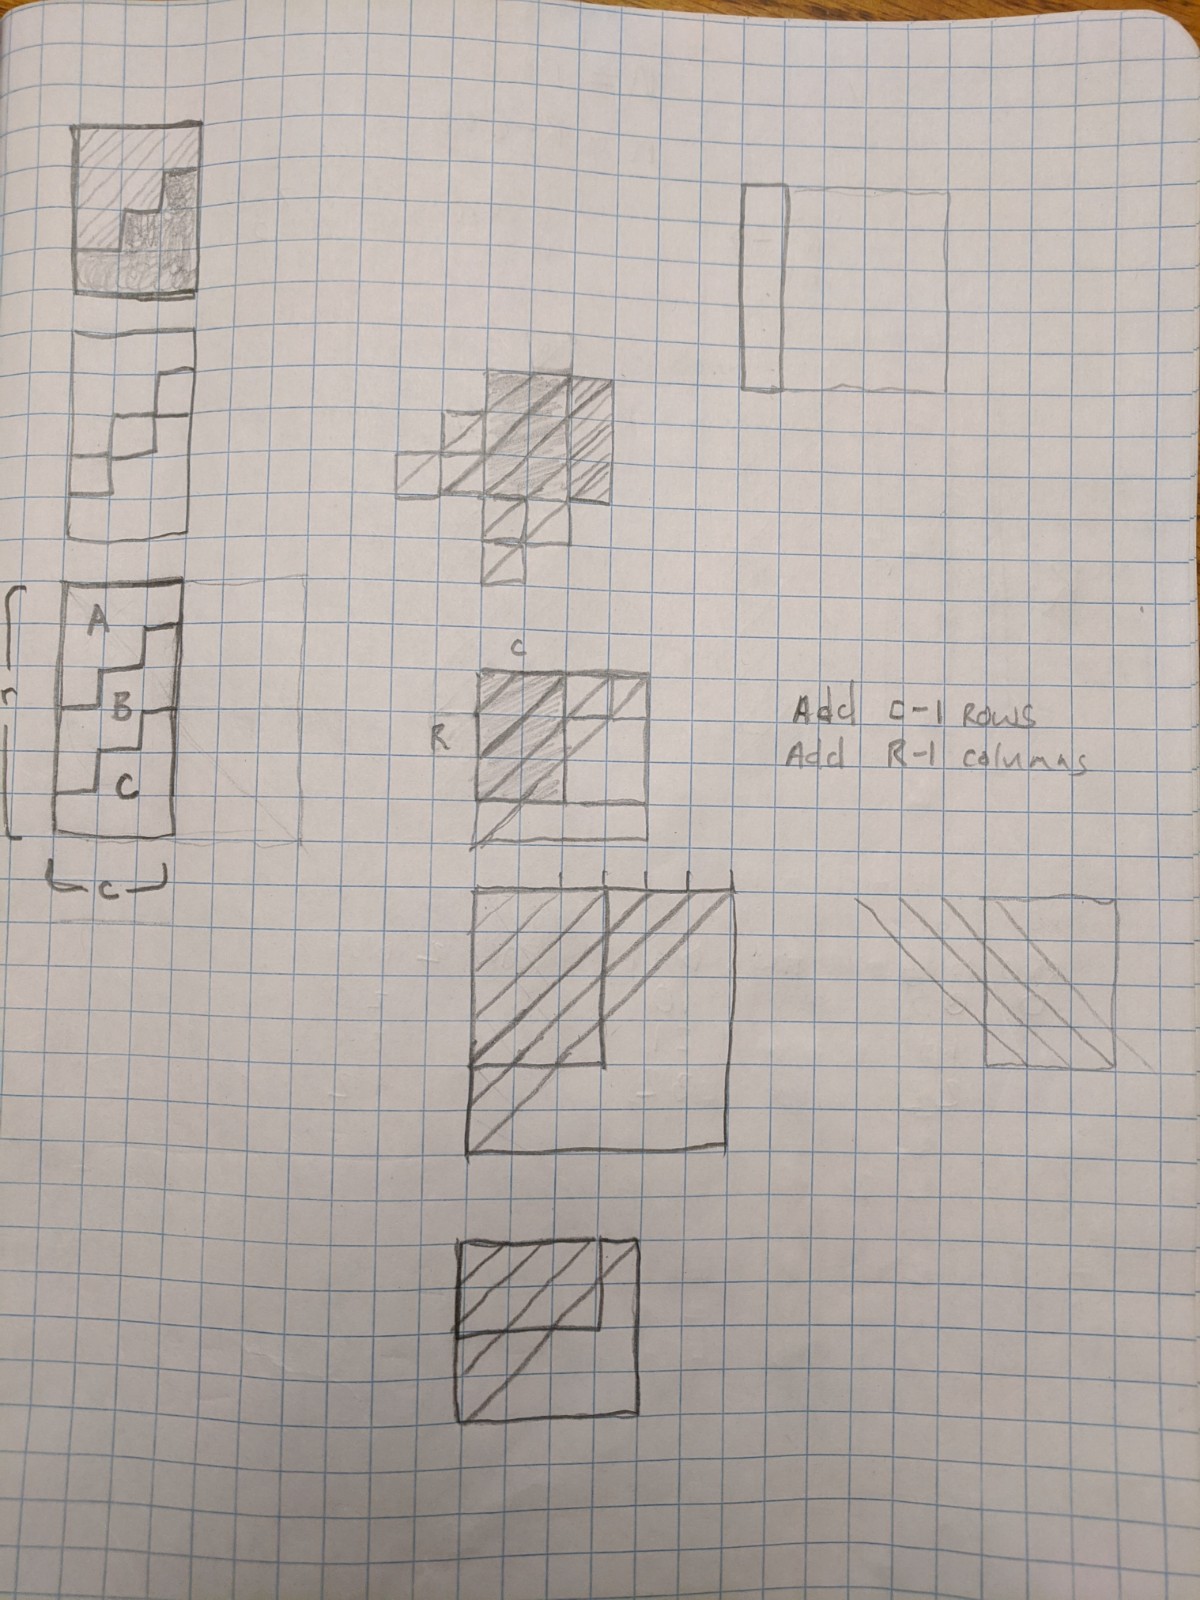 A
B
C
r
c
C
R
Add C-1 Rows
Add R-1 columns